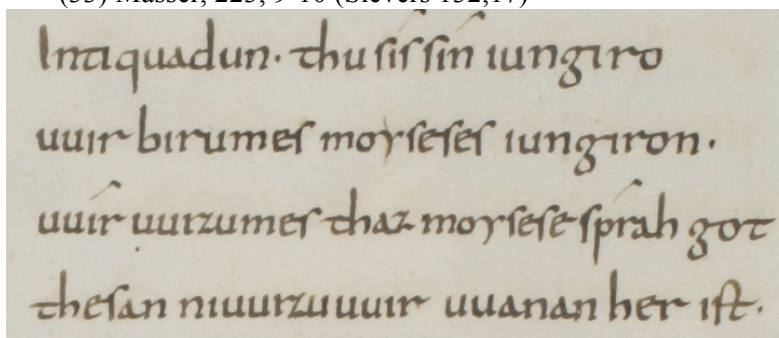 (35) Masser, 223, 9-10 (Sievers 132,17)
Inti quadun· thu sís sín iungiro
uuir birumes moyseses iungiron·
uuír uurzumes thaz moysese sprah got
thesan niuuurzu uuir uuanan her ist·